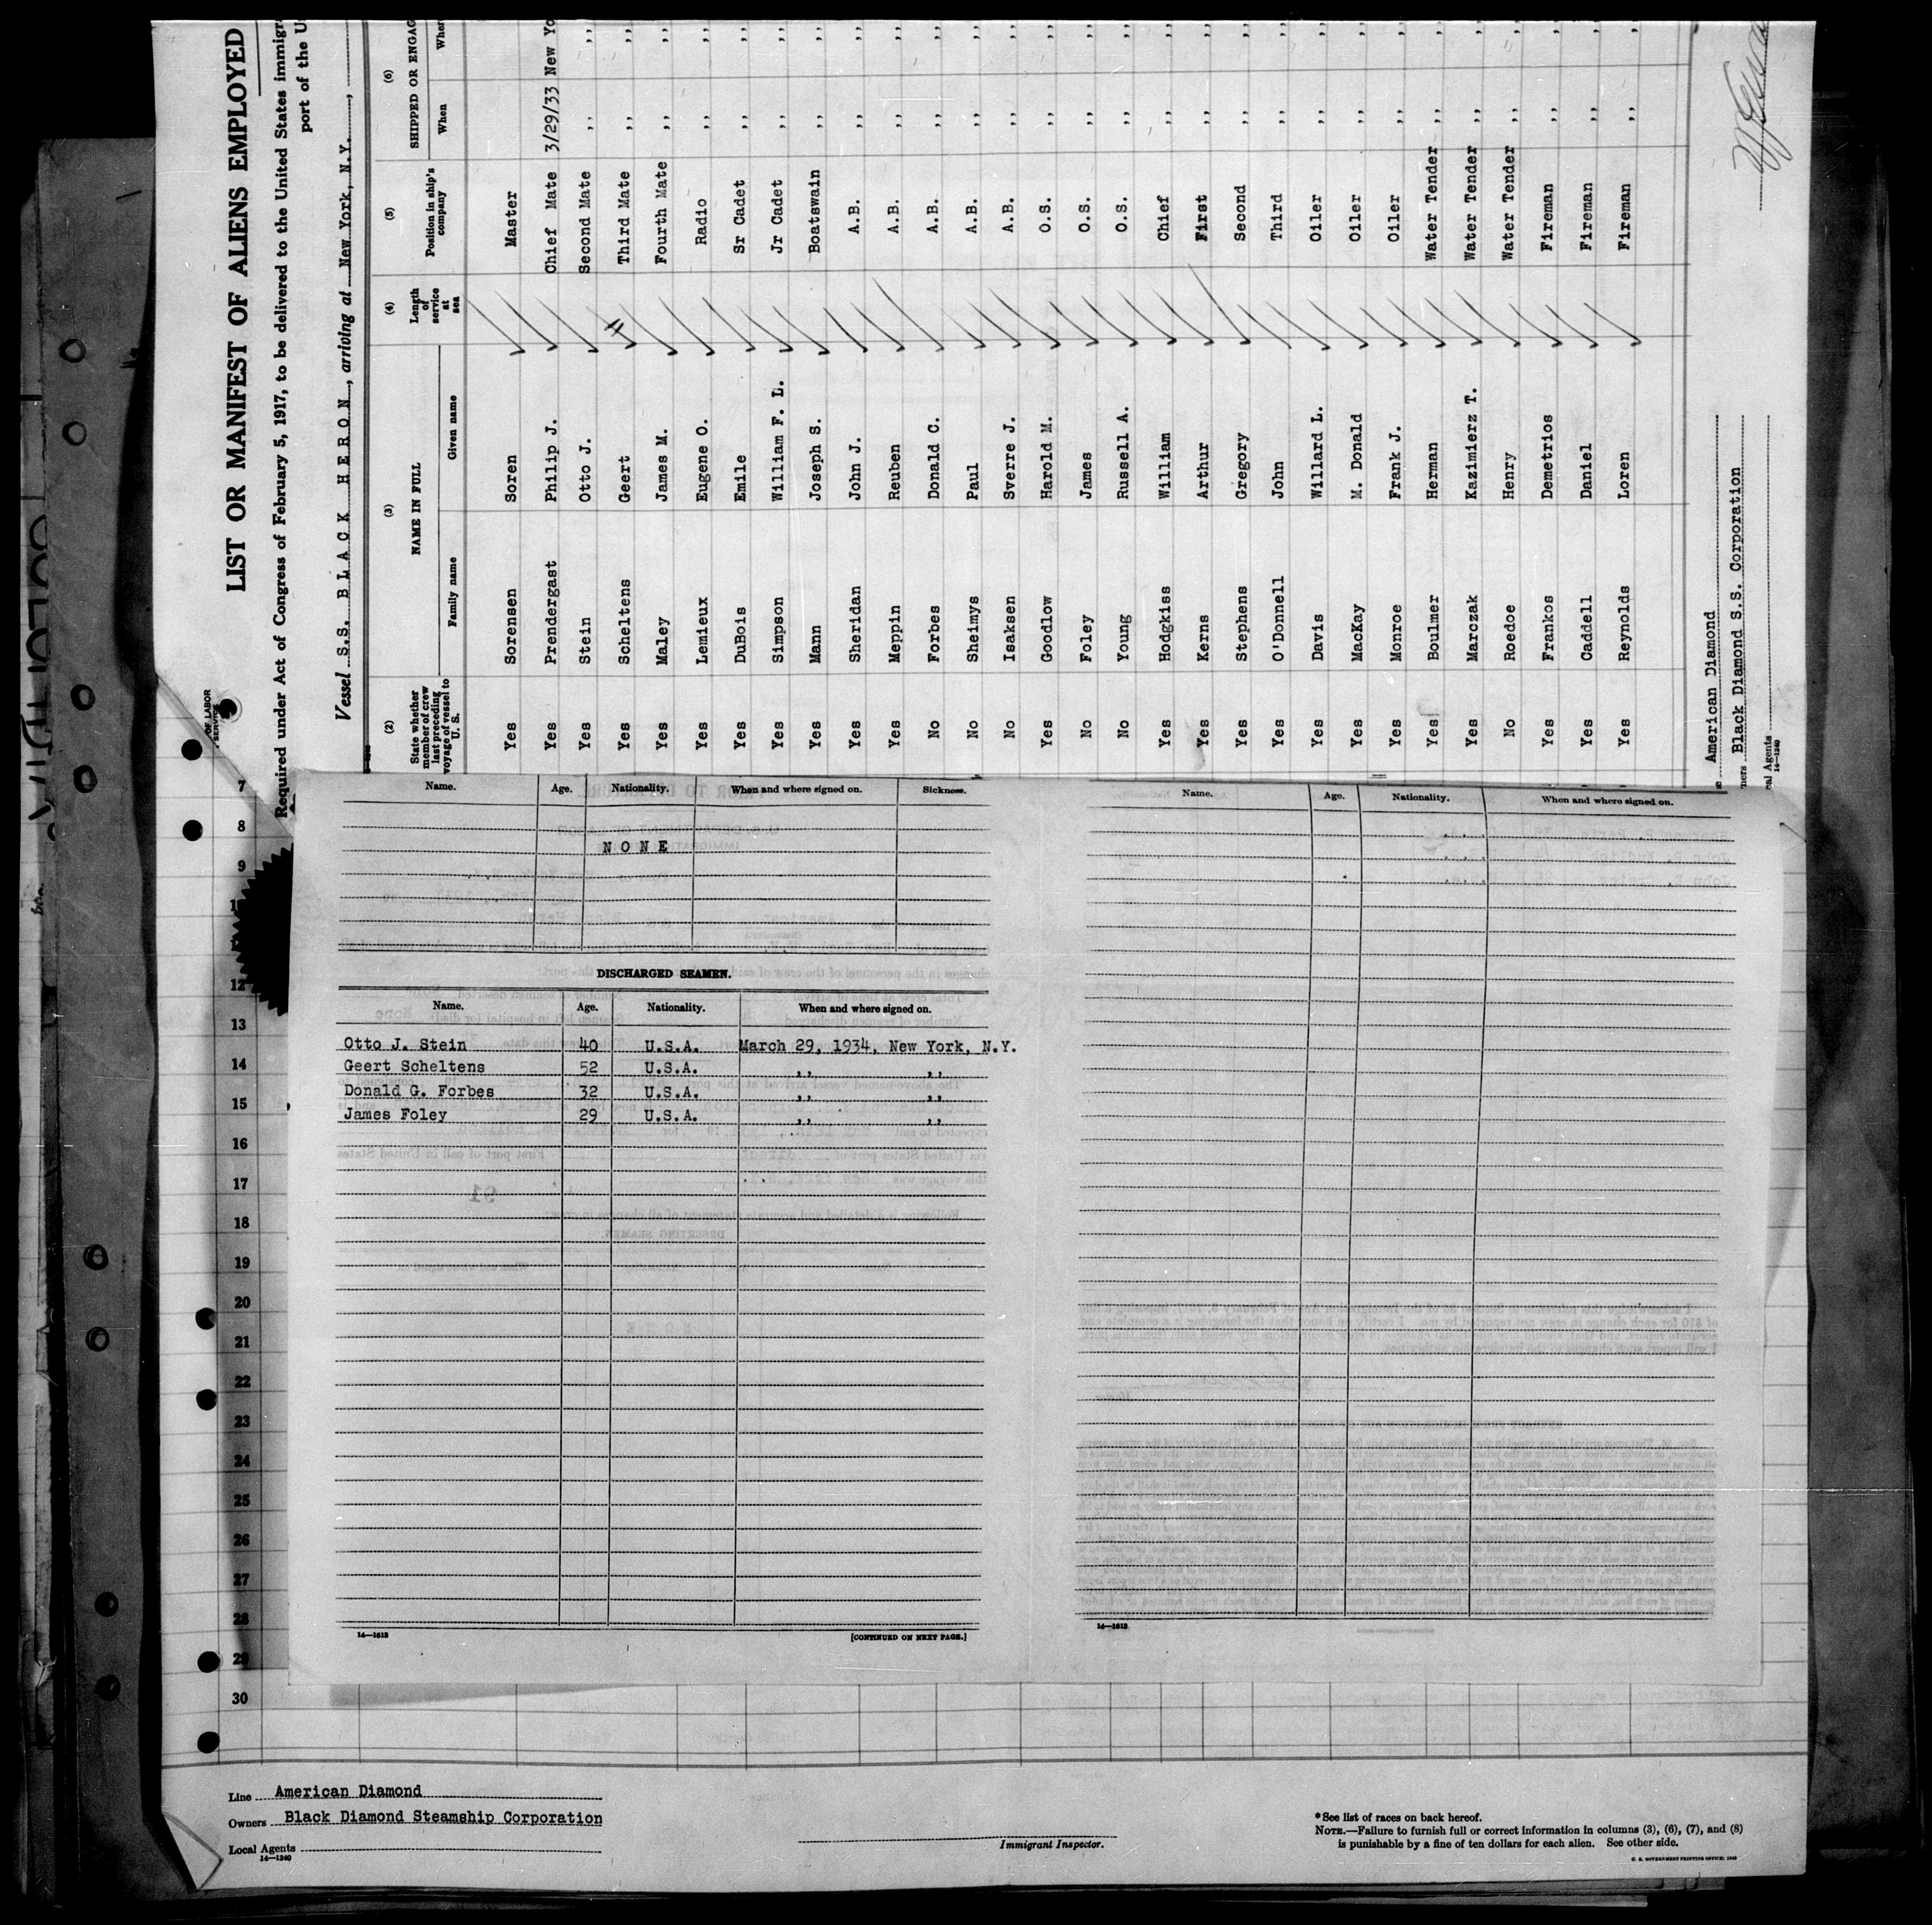 LIST OR MANIFEST OF ALIENS EMPLOYED
Required under Act of Congress of February 5, 1917, to be delivered to the United States immigr
port of the U
Vessel S.S. BLACK HERON, arriving at New York, N.Y.,
OF LABOR
SERVICE
(2) (3) (4) (5) (6)
State whether member of crew last preceding voyage of vessel to U. S. NAME IN FULL Length of service at sea Position in ship's company SHIPPED OR ENGAG
Family name Given name When Whe
Yes Sorensen Soren Master
Yes Prendergast Philip J. Chief Mate 3/29/33 New Yo
Yes Stein Otto J. Second Mate ,, ,,
Yes Scheltens Geert Third Mate ,, ,,
Yes Maley James M. Fourth Mate ,, ,,
Yes Lemieux Eugene O. Radio ,, ,,
Yes DuBois Emile Sr Cadet ,, ,,
Yes Simpson William F. L. Jr Cadet ,, ,,
Yes Mann Joseph S. Boatswain ,, ,,
Yes Sheridan John J. A.B. ,, ,,
Yes Meppin Reuben A.B. ,, ,,
No Forbes Donald C. A.B. ,, ,,
No Sheimys Paul A.B. ,, ,,
No Isaksen Sverre J. A.B. ,, ,,
Yes Goodlow Harold M. O.S. ,, ,,
No Foley James O.S. ,, ,,
No Young Russell A. O.S. ,, ,,
Yes Hodgkiss William Chief ,, ,,
Yes Kerns Arthur First ,, ,,
Yes Stephens Gregory Second ,, ,,
Yes O'Donnell John Third ,, ,,
Yes Davis Willard L. Oiler ,, ,,
Yes MacKay M. Donald Oiler ,, ,,
Yes Monroe Frank J. Oiler ,, ,,
Yes Boulmer Herman Water Tender ,, ,,
Yes Marczak Kazimierz T. Water Tender ,, ,,
No Roedoe Henry Water Tender ,, ,,
Yes Frankos Demetrios Fireman ,, ,,
Yes Caddell Daniel Fireman ,, ,,
Yes Reynolds Loren Fireman ,, ,,
American Diamond
Black Diamond S.S. Corporation
cal Agents
14—1240
7
8
9
12
13
14
15
16
17
18
19
20
21
22
23
24
25
26
27
28
29
30
Name. Age. Nationality. When and where signed on. Sickness.
NONE
DISCHARGED SEAMEN.
Name. Age. Nationality. When and where signed on.
Otto J. Stein 40 U.S.A. March 29, 1934, New York, N.Y.
Geert Scheltens 52 U.S.A. ,, ,,
Donald G. Forbes 32 U.S.A. ,, ,,
James Foley 29 U.S.A. ,, ,,
14—1613 [CONTINUED ON NEXT PAGE.]
Name. Age. Nationality. When and where signed on.
14—1613
Line American Diamond
Owners Black Diamond Steamship Corporation
Local Agents
14—1240
Immigrant Inspector.
*See list of races on back hereof.
NOTE.—Failure to furnish full or correct information in columns (3), (6), (7), and (8)
is punishable by a fine of ten dollars for each alien. See other side.